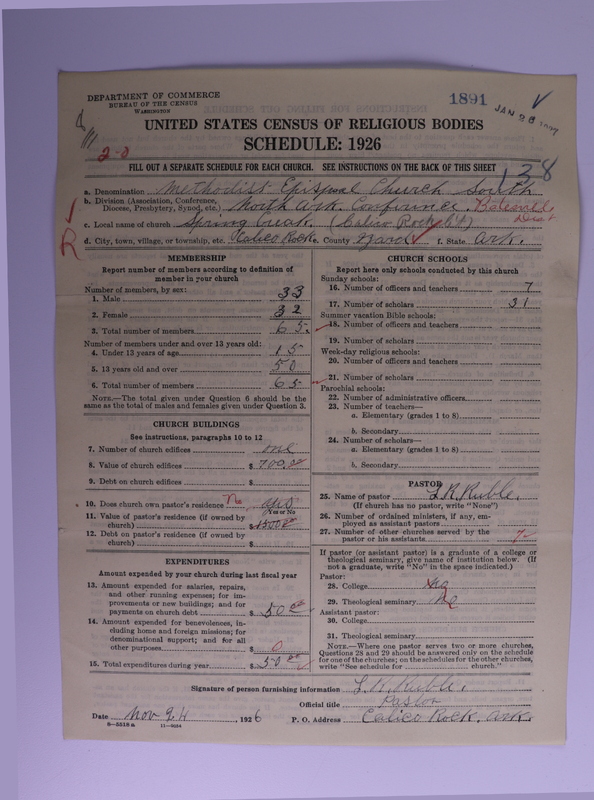 DEPARTMENT OF COMMERCE
BUREAU OF THE CENSUS
WASHINGTON
1891
JAN 28 1927
UNITED STATES CENSUS OF RELIGIOUS BODIES
SCHEDULE: 1926
2-0
FILL OUT A SEPARATE SCHEDULE FOR EACH CHURCH. SEE INSTRUCTIONS ON THE BACK OF THIS SHEET
138
a. Denomination Methodist Epispal Church South
b. Division (Association, Conference, Diocese, Presbytery, Synod, etc.) North Ark. Conference. Batesville Dist
c. Local name of church Spring Creek (Calico Rock Ct)
d. City, town, village, or township, etc. Calico Rock e. County Izard f. State Ark.
R
MEMBERSHIP
Report number of members according to definition of
member in your church
Number of members, by sex:
1. Male 33
2. Female 32
3. Total number of members 65.
Number of members under and over 13 years old:
4. Under 13 years of age 15
5. 13 years old and over 50
6. Total number of members 65
NOTE.—The total given under Question 6 should be the
same as the total of males and females given under Question 3.
CHURCH BUILDINGS
See instructions, paragraphs 10 to 12
7. Number of church edifices one
8. Value of church edifices $ 700.00
9. Debt on church edifices $
10. Does church own pastor's residence No
Yes or No
11. Value of pastor's residence (if owned by
church) $ 1500.00
12. Debt on pastor's residence (if owned by
church) $
EXPENDITURES
Amount expended by your church during last fiscal year
13. Amount expended for salaries, repairs,
and other running expenses; for im-
provements or new buildings; and for
payments on church debt $ 50.00
14. Amount expended for benevolences, in-
cluding home and foreign missions; for
denominational support; and for all
other purposes $ 0
15. Total expenditures during year $ 50.00
CHURCH SCHOOLS
Report here only schools conducted by this church
Sunday schools:
16. Number of officers and teachers 7
17. Number of scholars 31
Summer vacation Bible schools:
18. Number of officers and teachers
19. Number of scholars
Week-day religious schools:
20. Number of officers and teachers
21. Number of scholars
Parochial schools:
22. Number of administrative officers
23. Number of teachers—
a. Elementary (grades 1 to 8)
b. Secondary
24. Number of scholars—
a. Elementary (grades 1 to 8)
b. Secondary
PASTOR
25. Name of pastor L.R. Ruble.
(If church has no pastor, write "None")
26. Number of ordained ministers, if any, em-
ployed as assistant pastors
27. Number of other churches served by the
pastor or his assistants 7
If pastor (or assistant pastor) is a graduate of a college or
theological seminary, give name of institution below. (If
not a graduate, write "No" in the space indicated.)
Pastor:
28. College No
29. Theological seminary No
Assistant pastor:
30. College
31. Theological seminary
NOTE.—Where one pastor serves two or more churches,
Questions 28 and 29 should be answered only on the schedule
for one of the churches; on the schedules for the other churches,
write "See schedule for church."
Signature of person furnishing information L.R. Ruble.
Official title Pastor
Date Nov 24, 1926 P. O. Address Calico Rock, Ark.
8—5518 a